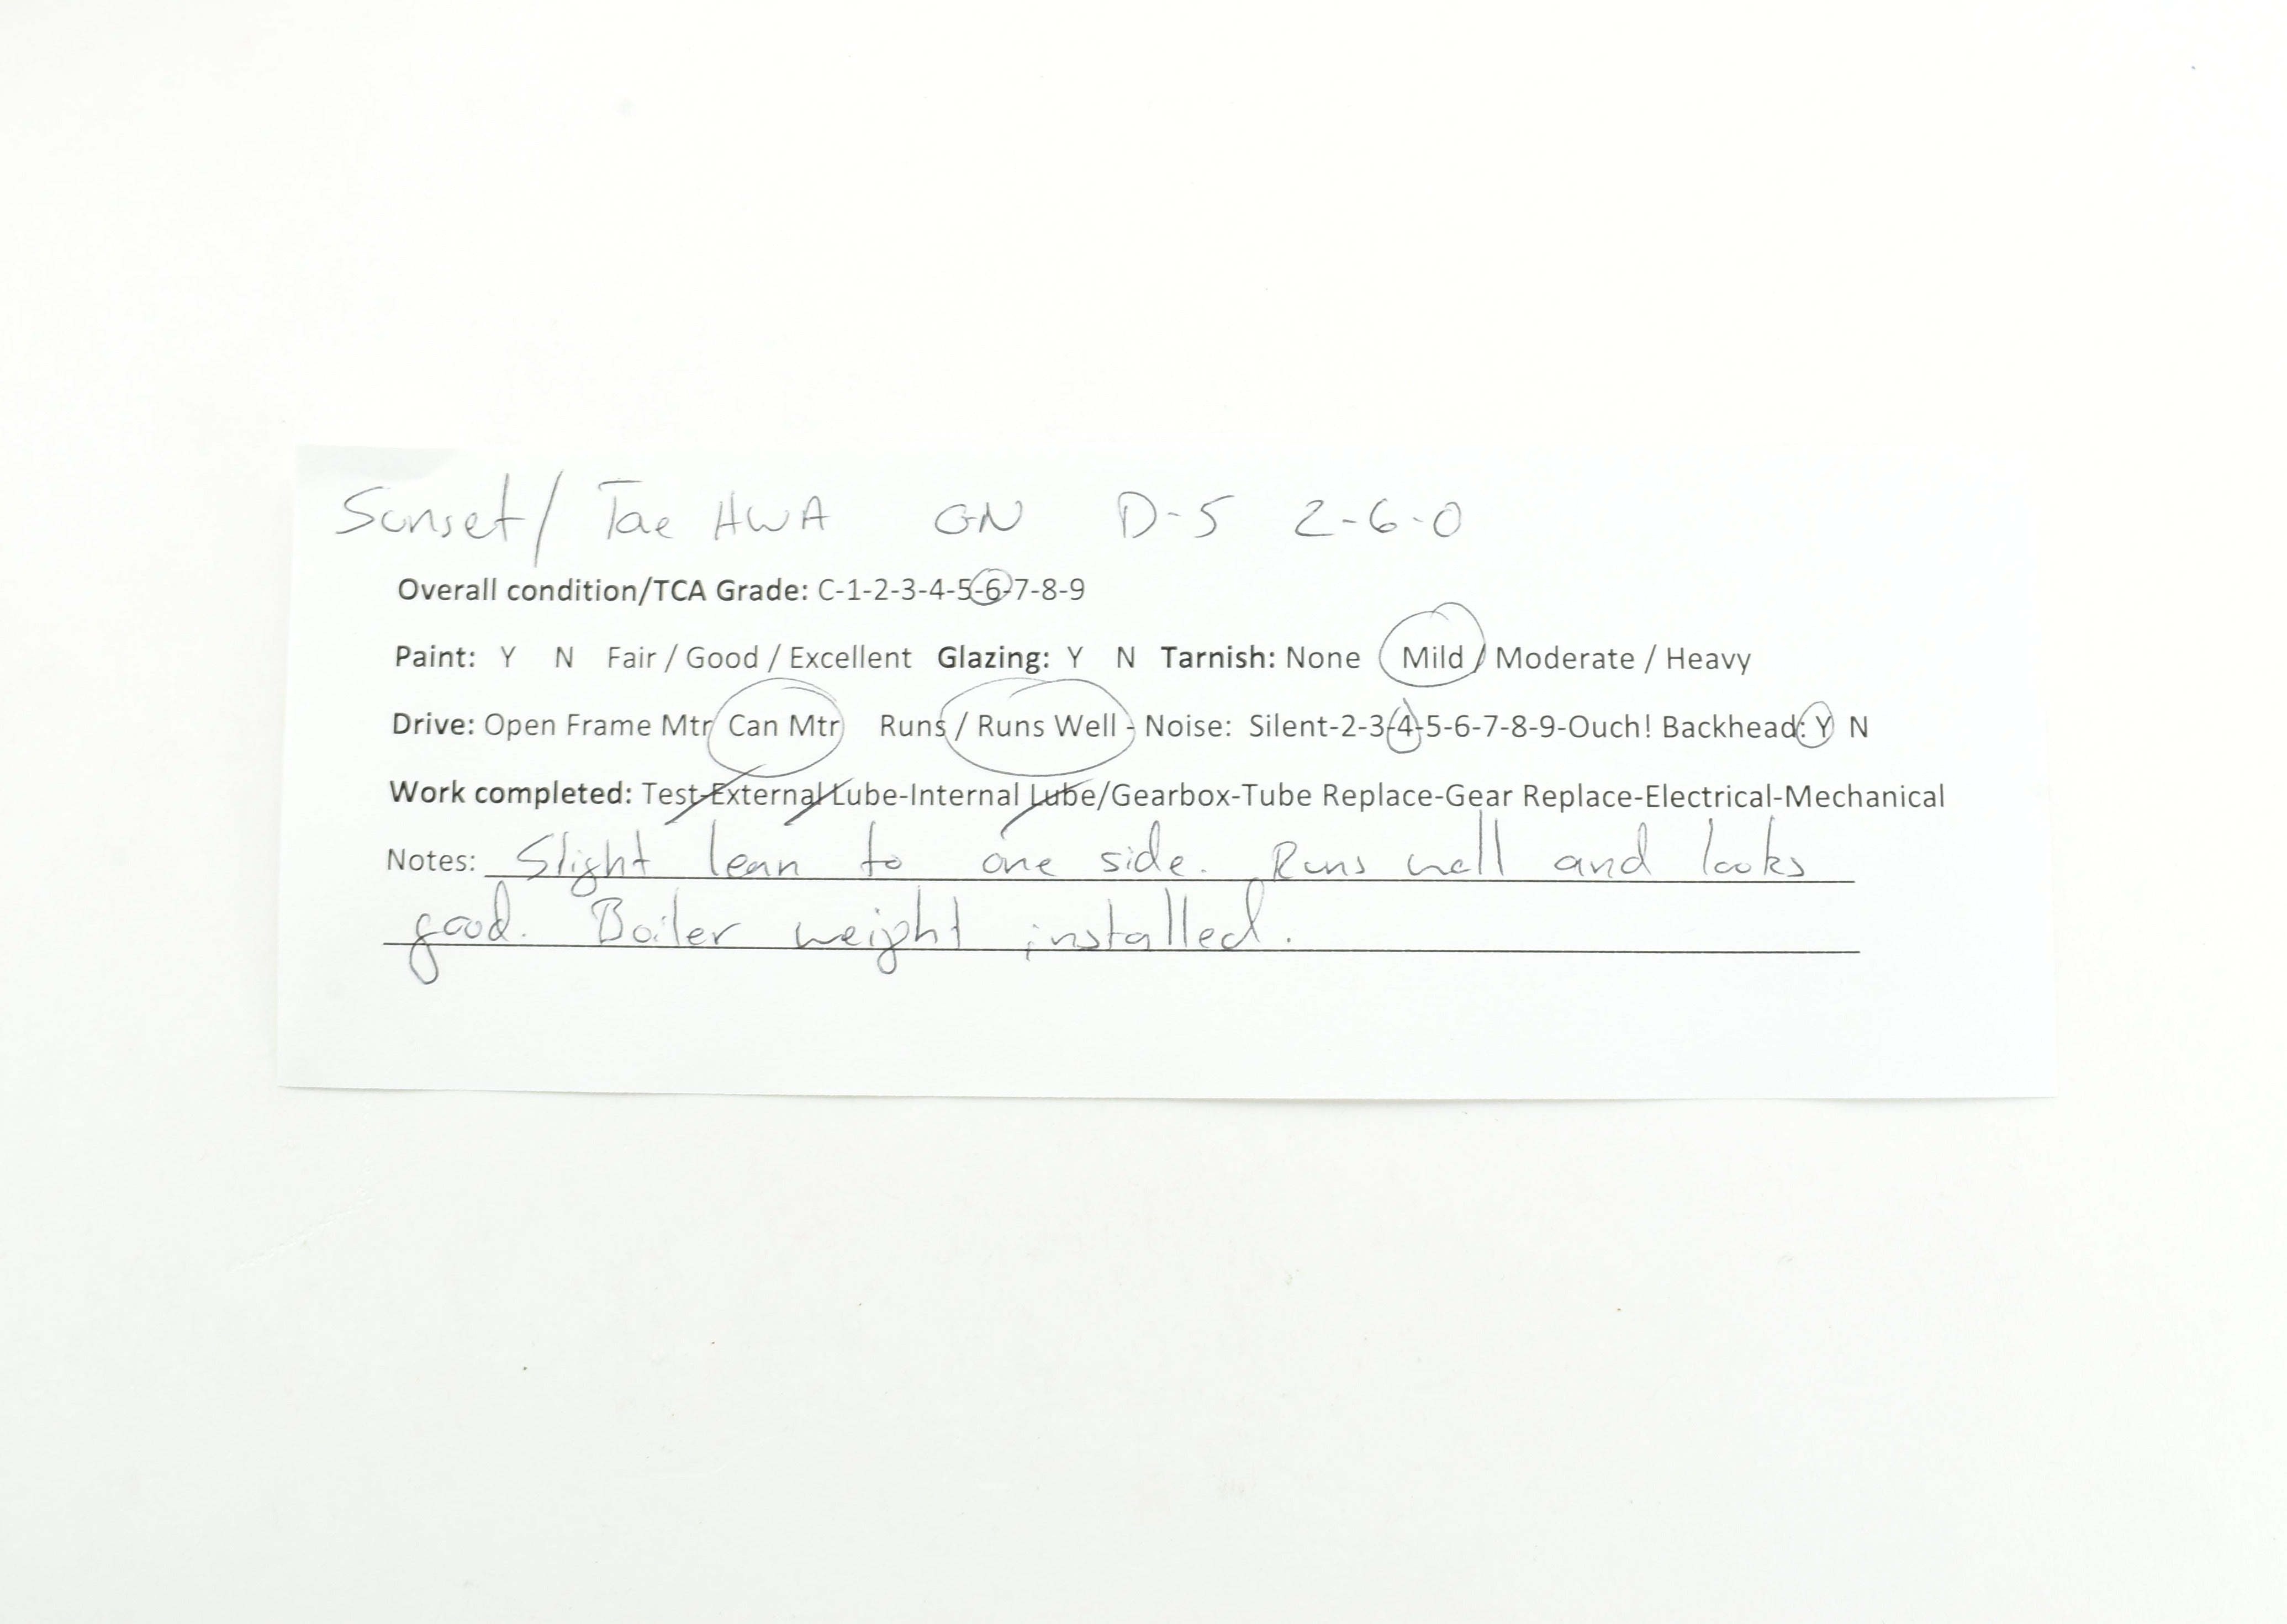 Sunset/ Tae HWA GN D-5 2-6-0
Overall condition/TCA Grade: C-1-2-3-4-5-6-7-8-9
Paint: Y N Fair / Good / Excellent Glazing: Y N Tarnish: None Mild / Moderate / Heavy
Drive: Open Frame Mtr Can Mtr Runs / Runs Well - Noise: Silent-2-3-4-5-6-7-8-9-Ouch! Backhead: Y N
Work completed: Test-External Lube-Internal Lube/Gearbox-Tube Replace-Gear Replace-Electrical-Mechanical
Notes: Slight lean to one side. Runs well and looks
good. Boiler weight installed.